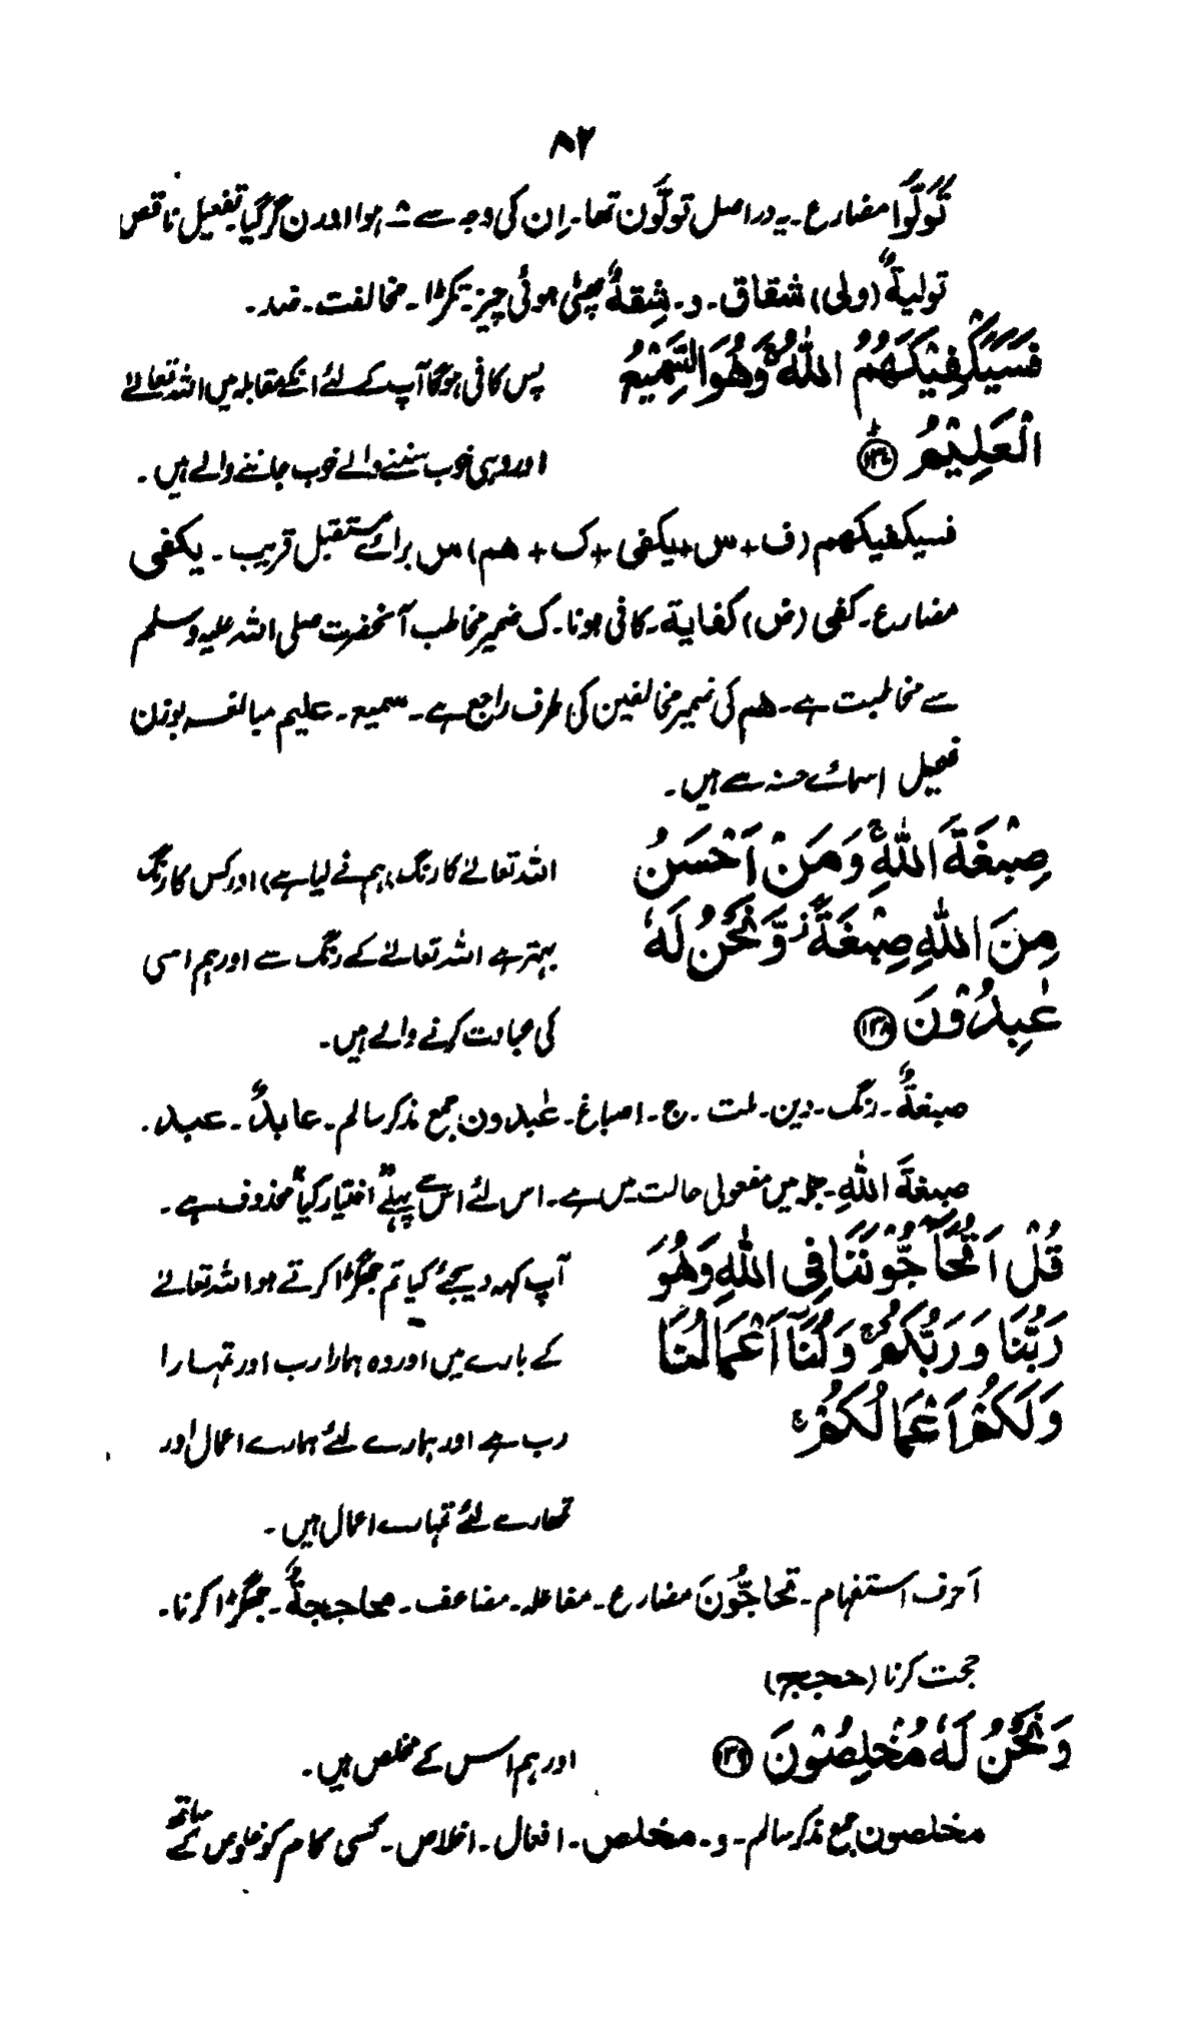 ۸۲
تُوَلُّوا مضارع۔ یہ دراصل تولّون تھا۔ اِن کی وجہ سے ہوا اور ن گر گیا۔ تفعیل ناقص
تولیةٌ (ولی) شقاق۔ و۔ شِقةٌ پھٹی ہوئی چیز۔ ٹکڑا۔ مخالفت۔ ضد۔
فَسَيَكْفِيْكَهُمُ اللّٰهُ ۚ وَهُوَ السَّمِيْعُ
پس کافی ہوگا آپ کے لئے انکے مقابلہ میں اللہ تعالےٰ
الْعَلِيْمُ ۱۳۷ ط
اور وہی خوب سننے والے خوب جاننے والے ہیں۔
فسیکفیکھم (ف + س + یکفی + ک + ھم) س برائے مستقبل قریب۔ یکفی
مضارع۔ کفی (ض) کفایة۔ کافی ہونا۔ ک ضمیر مخاطب آنحضرت صلی اللہ علیہ وسلم
سے مخاطبت ہے۔ ھم کی ضمیر مخالفین کی طرف راجع ہے۔ سمیع۔ علیم مبالغہ بوزن
فعیل اسمائے حسنہ سے ہیں۔
صِبْغَةَ اللّٰهِ ۚ وَمَنْ اَحْسَنُ
اللہ تعالےٰ کا رنگ (ہم نے لیا ہے) اور کس کا رنگ
مِنَ اللّٰهِ صِبْغَةً ۫ وَّنَحْنُ لَهٗ
بہتر ہے اللہ تعالےٰ کے رنگ سے اور ہم اسی
عٰبِدُوْنَ ۱۳۸
کی عبادت کرنے والے ہیں۔
صبغةٌ۔ رنگ۔ دین۔ ملت۔ ج۔ اصباغ۔ عٰبدون جمع مذکر سالم۔ عابدٌ۔ عبد۔
صبغةَ اللّٰهِ۔ جملہ میں مفعولی حالت میں ہے۔ اس لئے اس سے پہلے "اختیار کیا" محذوف ہے۔
قُلْ اَتُحَآجُّوْنَنَا فِى اللّٰهِ وَهُوَ
آپ کہہ دیجئے کیا تم جھگڑا کرتے ہو اللہ تعالےٰ
رَبُّنَا وَرَبُّكُمْ ۚ وَلَنَآ اَعْمَالُنَا
کے بارے میں اور وہ ہمارا رب اور تمہارا
وَلَكُمْ اَعْمَالُكُمْ ۚ
رب ہے اور ہمارے لئے ہمارے اعمال اور
تمھارے لئے تمہارے اعمال ہیں۔
اَ حرف استفہام۔ تحاجُّونَ مضارع۔ مفاعلہ۔ مضاعف۔ محاججةٌ۔ جھگڑا کرنا۔
حجت کرنا (حجج)
وَنَحْنُ لَهٗ مُخْلِصُوْنَ ۱۳۹
اور ہم اسی کے مخلص ہیں۔
مخلصون جمع مذکر سالم۔ و۔ مخلص۔ افعال۔ اخلاص۔ کسی کام کو خلوص کے ساتھ